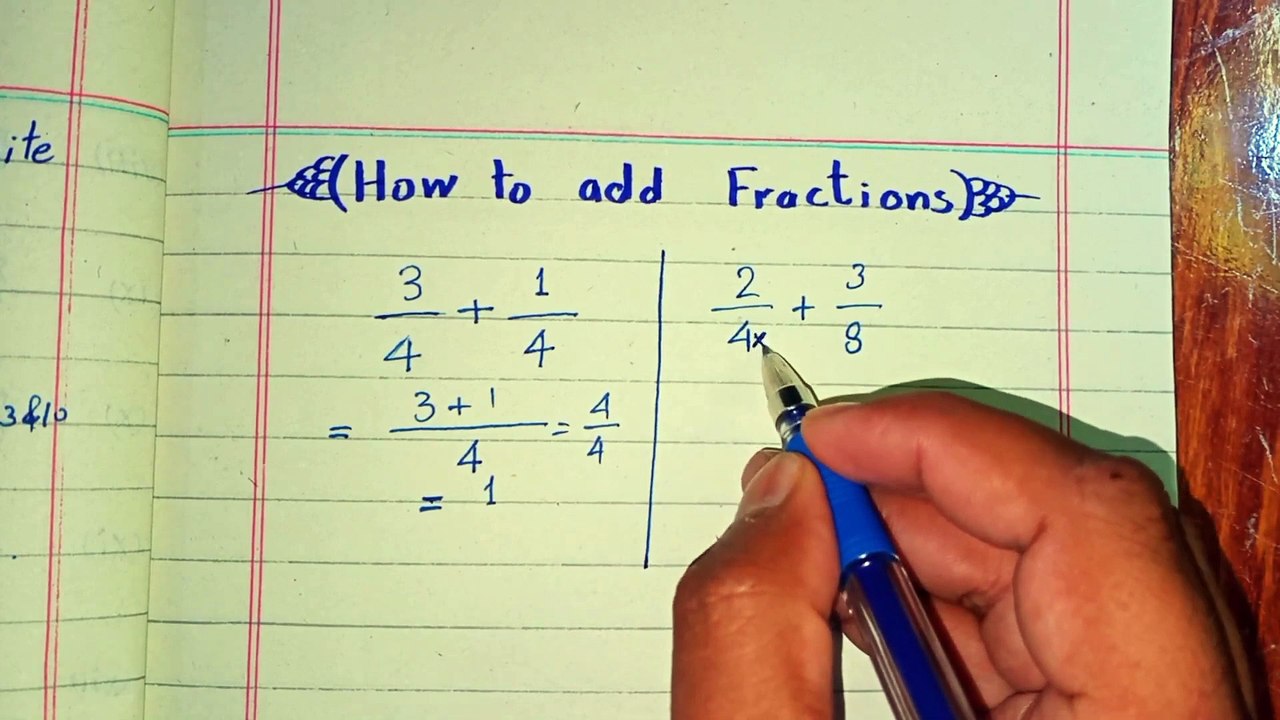 ite
3&10
(How to add Fractions)
3/4 + 1/4
= 3 + 1/4 = 4/4
= 1
2/4x + 3/8